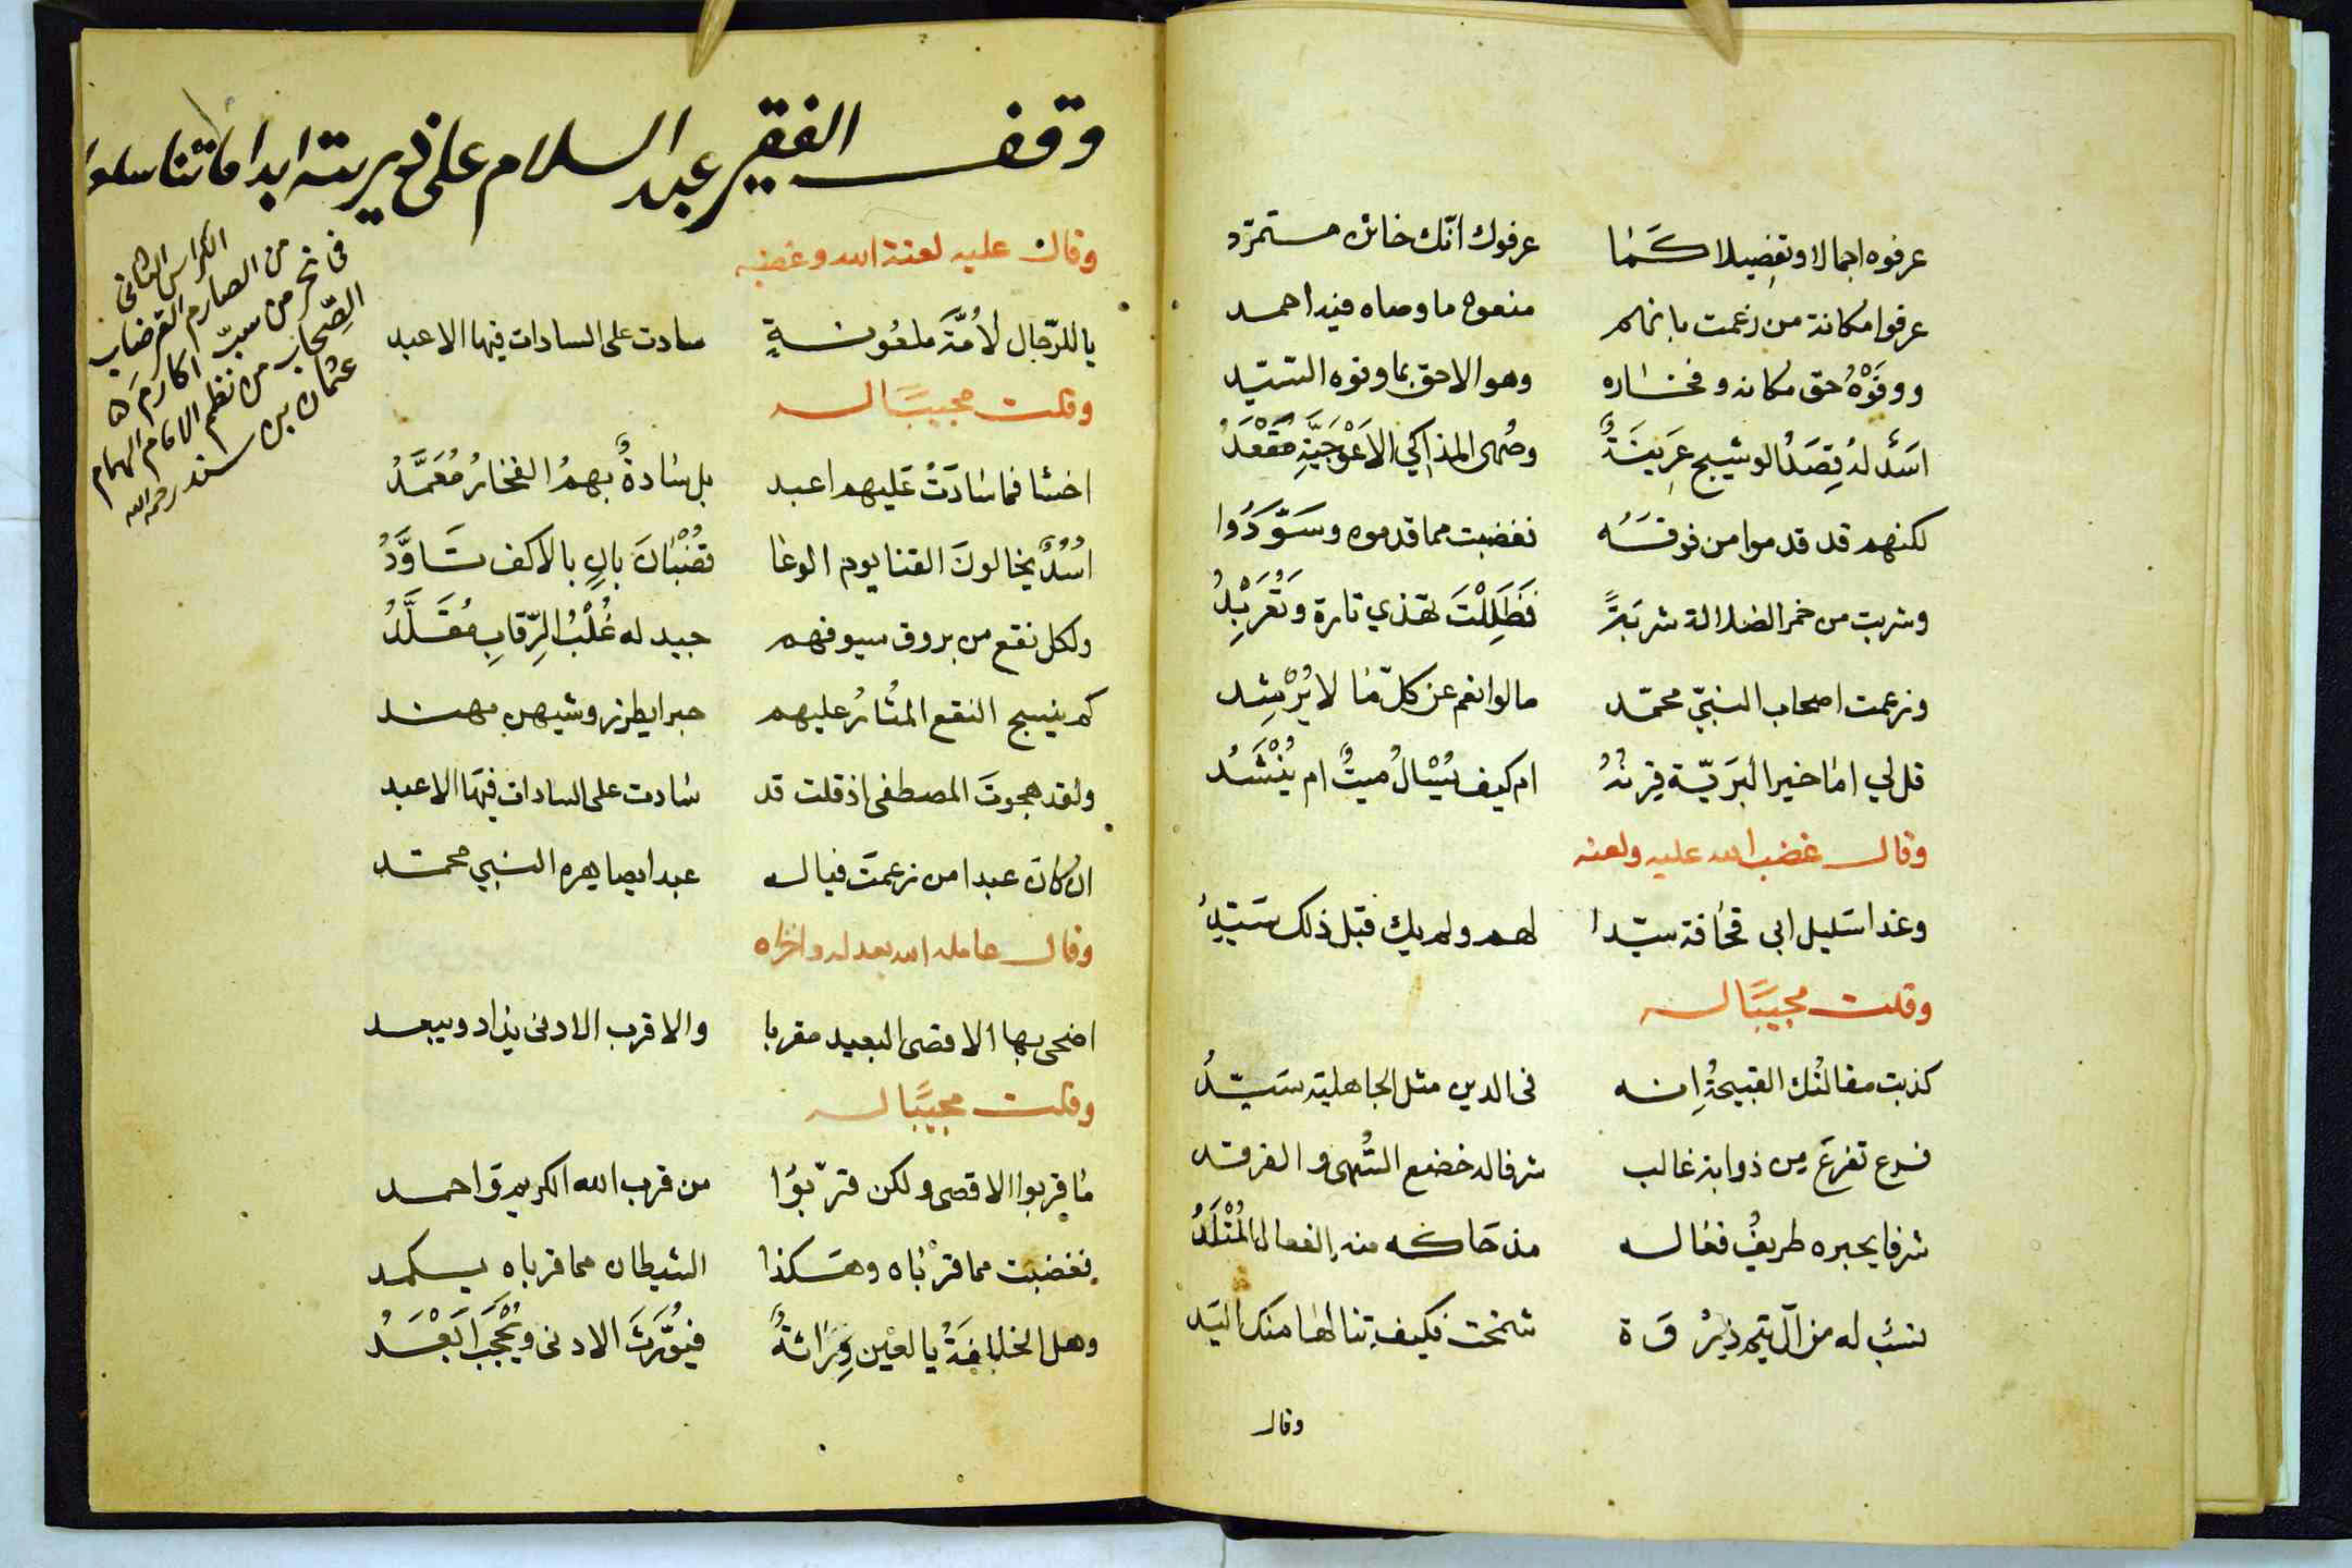 عرفوه اجمالا وتفصيلا كَمَا عرفوك انّك خائن مستمرّد
عرفوا مكانة من زعمت بانهم منعوه ما وصاه فيه احمد
ووفَوْهُ حق مكانه وفخاره وهو الاحق بما ونوه السيّد
اسَدٌ له قِصَدُ الوشيج عَرِينَةٌ وصُهى المذاكي الاَعْوَجيَّةِ مَقْعَدُ
لكنهم قد قدموا من فوقَهُ فغضبت مما قدموه وسَوَّدُوا
وشربت من خمر الضلالة شربَةً فَظَلِلْتَ تهذي تارة وتُعَرْبِدُ
وزعمت اصحاب النبيّ محمّد مالوا نعم عن كلّ مَا لا يُرْشِد
قل لي امَا خير البَريّة فِرنْدُ ام كيف يُسْالُ ميتٌ ام يُنْشَدُ
وقال غضب الله عليه ولعنه
وغدا سَليل ابي قحَافة سيّدا لهم ولم يك قبل ذلك سَيّدُ
وقلت مجيبًا له
كذبت مقالتُك القبيحةُ اِنه فى الدين مثل الجاهلية سَيّدُ
فرع تفرعَ مِن ذوابة غالب شرفا له خضع السُّهى والفرقد
شرفا يحبره طريفُ فعَاله مذ حَاكه منه الفعال المُتْلَدُ
نسَبٌ له من آل تيم ذِرْوَة شمخت فكيف تنالهَا منك اليَد
وقال
وقف الفقير عبد السلام على ذريته ابدا ما تناسلوا
الكراس الثانى
من الصارم القرضاب
فى نحر من سبّ اكارم
الصّحاب من نظم الامام الهمام
عثمان بن سند رحمه الله
وقال عليه لعنة الله وغضبه
يا للرّجال لاُمَّةٍ ملعُونةٍ سادت على السادات فيها الاعبد
وقلت مجيبًا له
اخسَا فما سَادَتْ عَليهم اعبد بل سَادةٌ بهمُ الفخارُ مُعَمَّدُ
اُسُدٌ يخالونَ القنا يوم الوغا قُضْبَانَ بانٍ بالاكف تَاَوَّدُ
ولكل نقع من بروق سيوفهم جيد له غُلْبُ الرّقابِ مُقَلَّدُ
كم ينسج النقع المثَارُ عليهم حبرا يطرز وشيهن مهند
ولقد هجوتَ المصطفى اذ قلت قد سَادت على السادات فيهَا الاعبد
ان كانَ عبدا من زعمتَ فيا له عبدا يصاهره النبي محمّد
وقال عامله الله بعدله واخزاه
اضحى بها الاقصى البعيد مقربا والاقرب الادنى يذاد ويبعد
وقلت مجيبًا له
مَا قربوا الاقصى ولكن قرّبوُا من قرب الله الكريم وَاحمد
فغضبت مما قرْبَاه وهَكذا الشيطان مما قرباه يكمد
وهل الخلافَةُ يا لعين وِرَاثةٌ فيُوَّرَثَ الادنى ويُحْجَبَ اَبْعَدُ